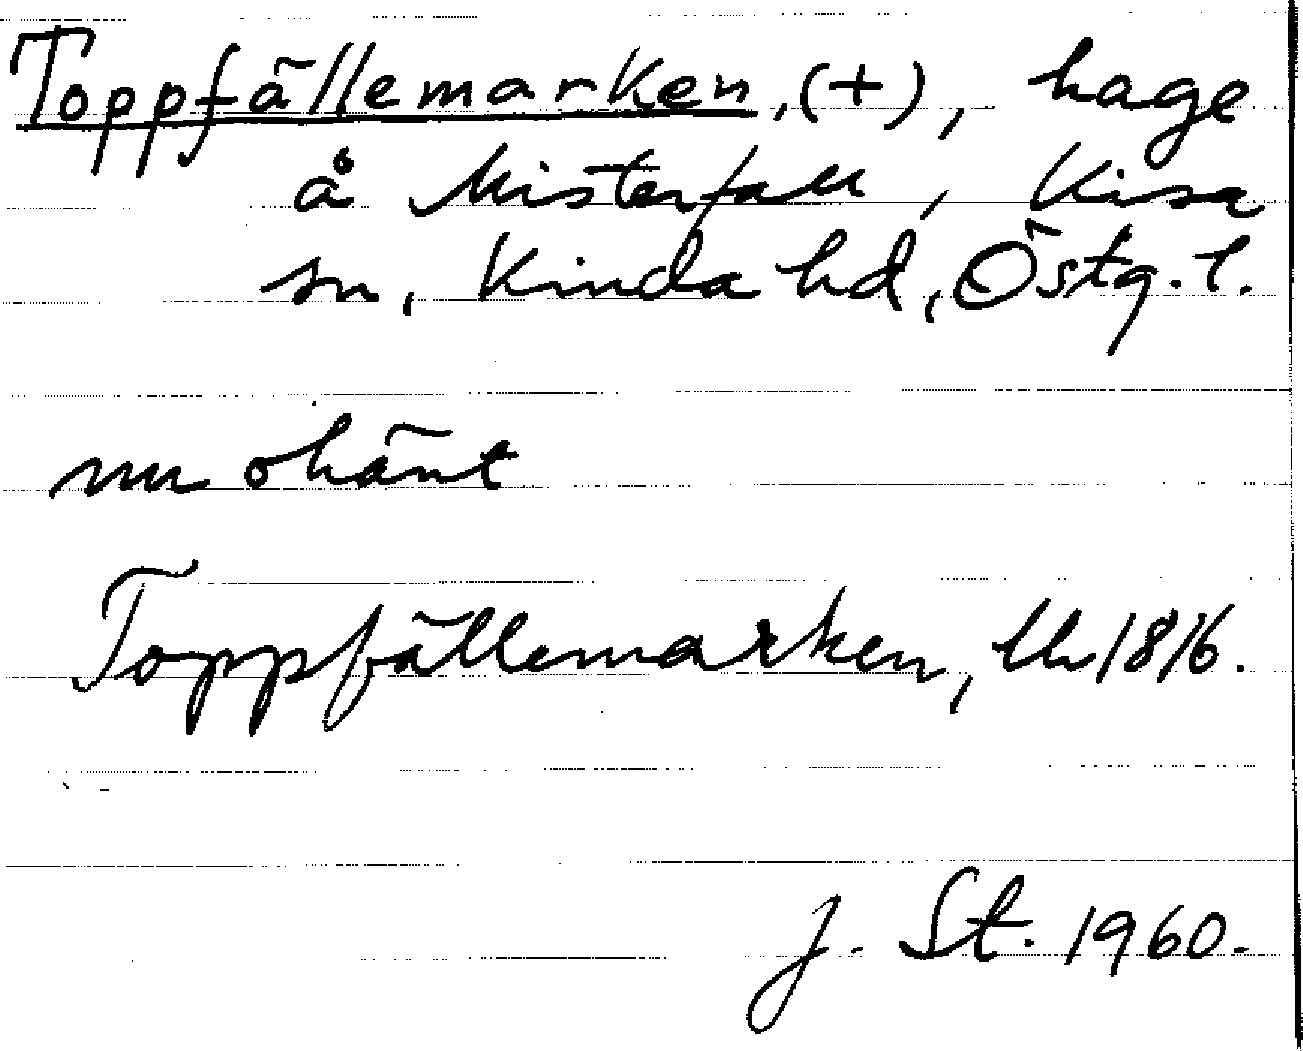 Toppfällemarken, (+), hage
å Misterfall, Kisa
sn, Kinda hd, Östg. l.
nu okänt
Toppfällemarken, Uh 1816.
J. St. 1960.